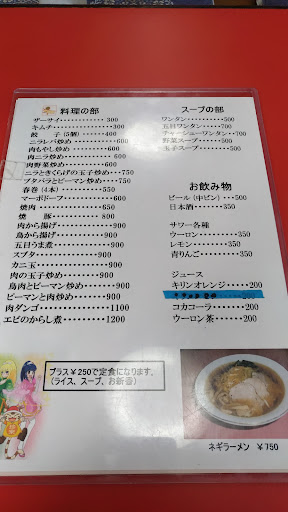 料理の部
ザーサイ・・・・・・・・・・・・ 300
キムチ・・・・・・・・・・・・・300
餃　子(5個)・・・・・・・400
ニラレバ炒め・・・・・・・・600
肉もやし炒め・・・・・・・・600
肉ニラ炒め・・・・・・・・・600
肉野菜炒め・・・・・・・・・600
ニラときくらげの玉子炒め・・・・750
ブタバラとピーマン炒め・・・・750
春巻(4本)・・・・・・・・550
マーボドーフ・・・・・・・・600
焼肉・・・・・・・・・・・・650
焼　豚・・・・・・・・・・・800
肉から揚げ・・・・・・・・・900
鳥から揚げ・・・・・・・・・900
五目うま煮・・・・・・・・・900
スブタ・・・・・・・・・・・900
カニ玉・・・・・・・・・・・900
肉の玉子炒め・・・・・・・・900
鳥肉とピーマン炒め・・・・・900
ピーマンと肉炒め・・・・・・900
肉ダンゴ・・・・・・・・・・1100
エビのからし煮・・・・・・・1200
プラス¥250で定食になります。
(ライス、スープ、お新香)
スープの部
ワンタン・・・・・・・・・・500
五目ワンタン・・・・・・・・700
チャーシューワンタン・・・・700
野菜スープ・・・・・・・・・500
玉子スープ・・・・・・・・・500
お飲み物
ビール(中ビン)・・・・・・550
日本酒・・・・・・・・・・・350
サワー各種
ウーロン・・・・・・・・・・350
レモン・・・・・・・・・・・350
青りんご・・・・・・・・・・350
ジュース
キリンオレンジ・・・・・・・200
コカコーラ・・・・・・・・・200
ウーロン茶・・・・・・・・・200
ネギラーメン　¥750